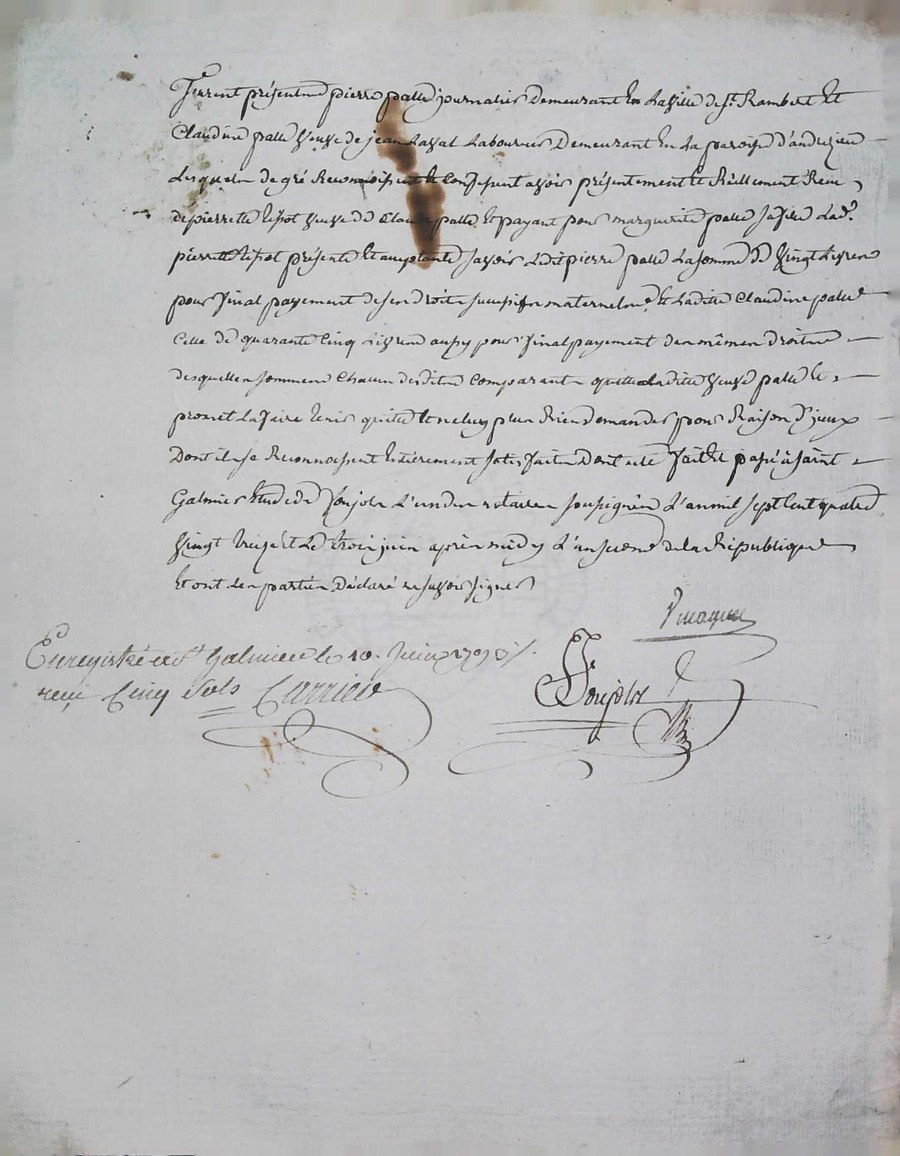 furent présents pierre palle journalier Demeurant En La Ville de St. Rambert Et
Claudine palle Veuve de jean Laval Laboureur Demeurant En La paroisse d'andrezieu
Lesquels de gré Reconnoissent Et Confessent avoir présentement Et Réellement Reçu
de pierrette Veuve de Claude palle Et payant pour marguerite palle sa fille Lade.
pierrette présente Et acceptante savoir Ledit pierre palle La somme de Vingt Livres
pour final payement de ses droits successifs maternels Et Ladite Claudine palle
Celle de quarante Cinq Livres aussy pour final payement des mêmes droits
desquelles sommes Chacun desdits Comparants quitte Ladite Veuve palle Et
promet La faire tenir quitte Et ne luy plus Rien demander pour Raison d'iceux
Dont ils se Reconnoissent Entièrement satisfaits Dont acte fait Et passé à saint
Galmier Etude de Ponjols L'un des notaires soussignés L'an mil sept Cent quatre
Vingt treize Et Le trois juin après midy L'an second de la République
Et ont Les parties Déclaré ne savoir signer
Ponjols
Enregistré a St Galmier le 10. juin 1793
reçu Cinq sols Carrier